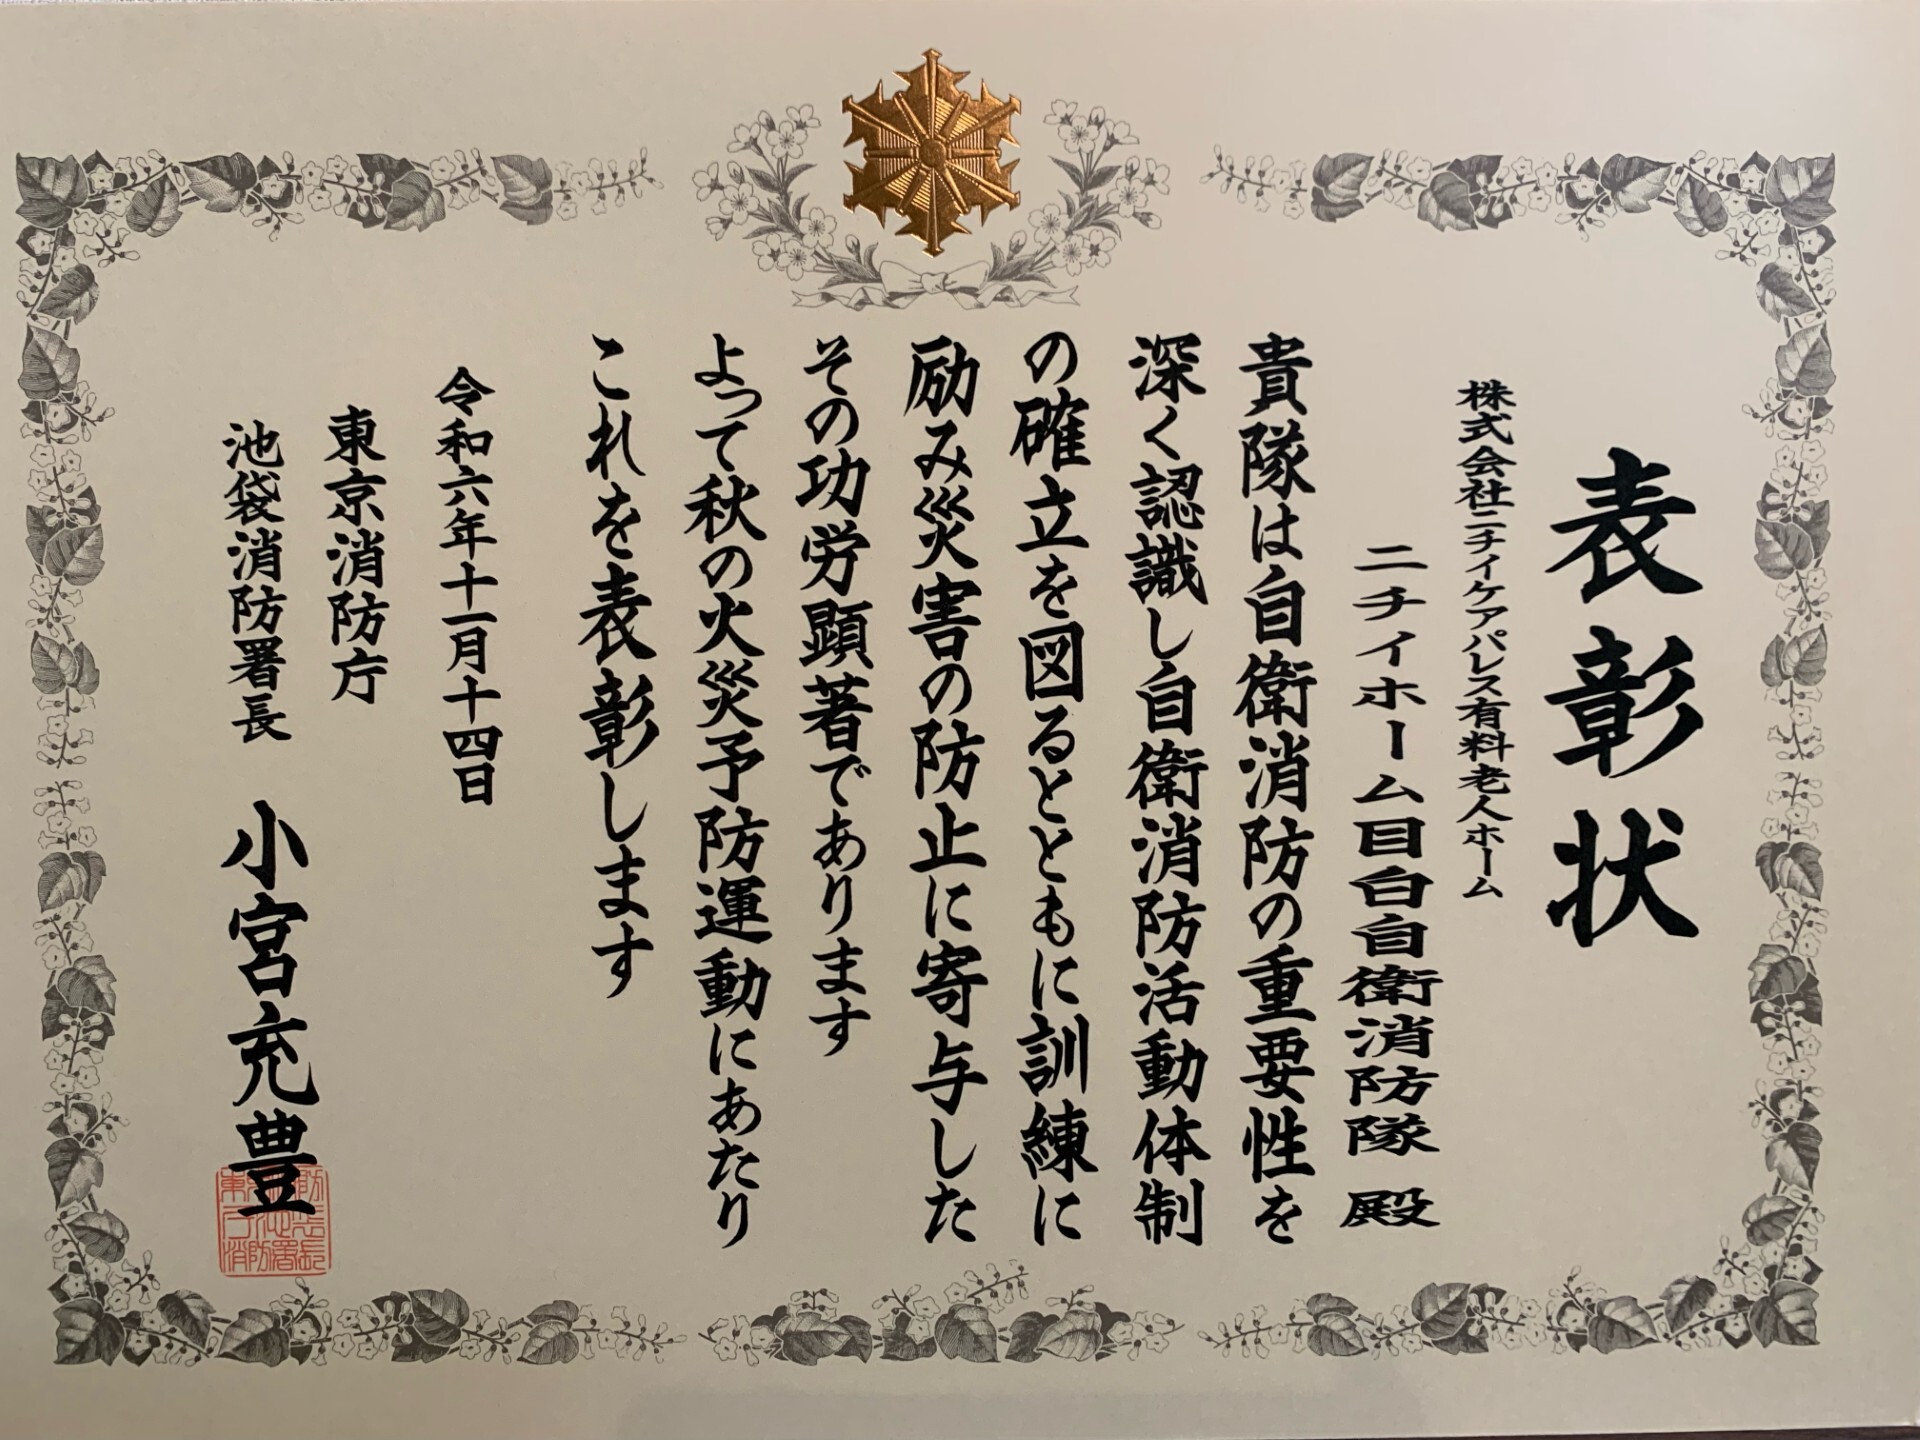 表彰状
株式会社ニチイケアパレス有料老人ホーム
ニチイホーム目白自衛消防隊 殿
貴隊は自衛消防の重要性を
深く認識し自衛消防活動体制
の確立を図るとともに訓練に
励み災害の防止に寄与した
その功労顕著であります
よって秋の火災予防運動にあたり
これを表彰します
令和六年十一月十四日
東京消防庁
池袋消防署長 小宮充豊